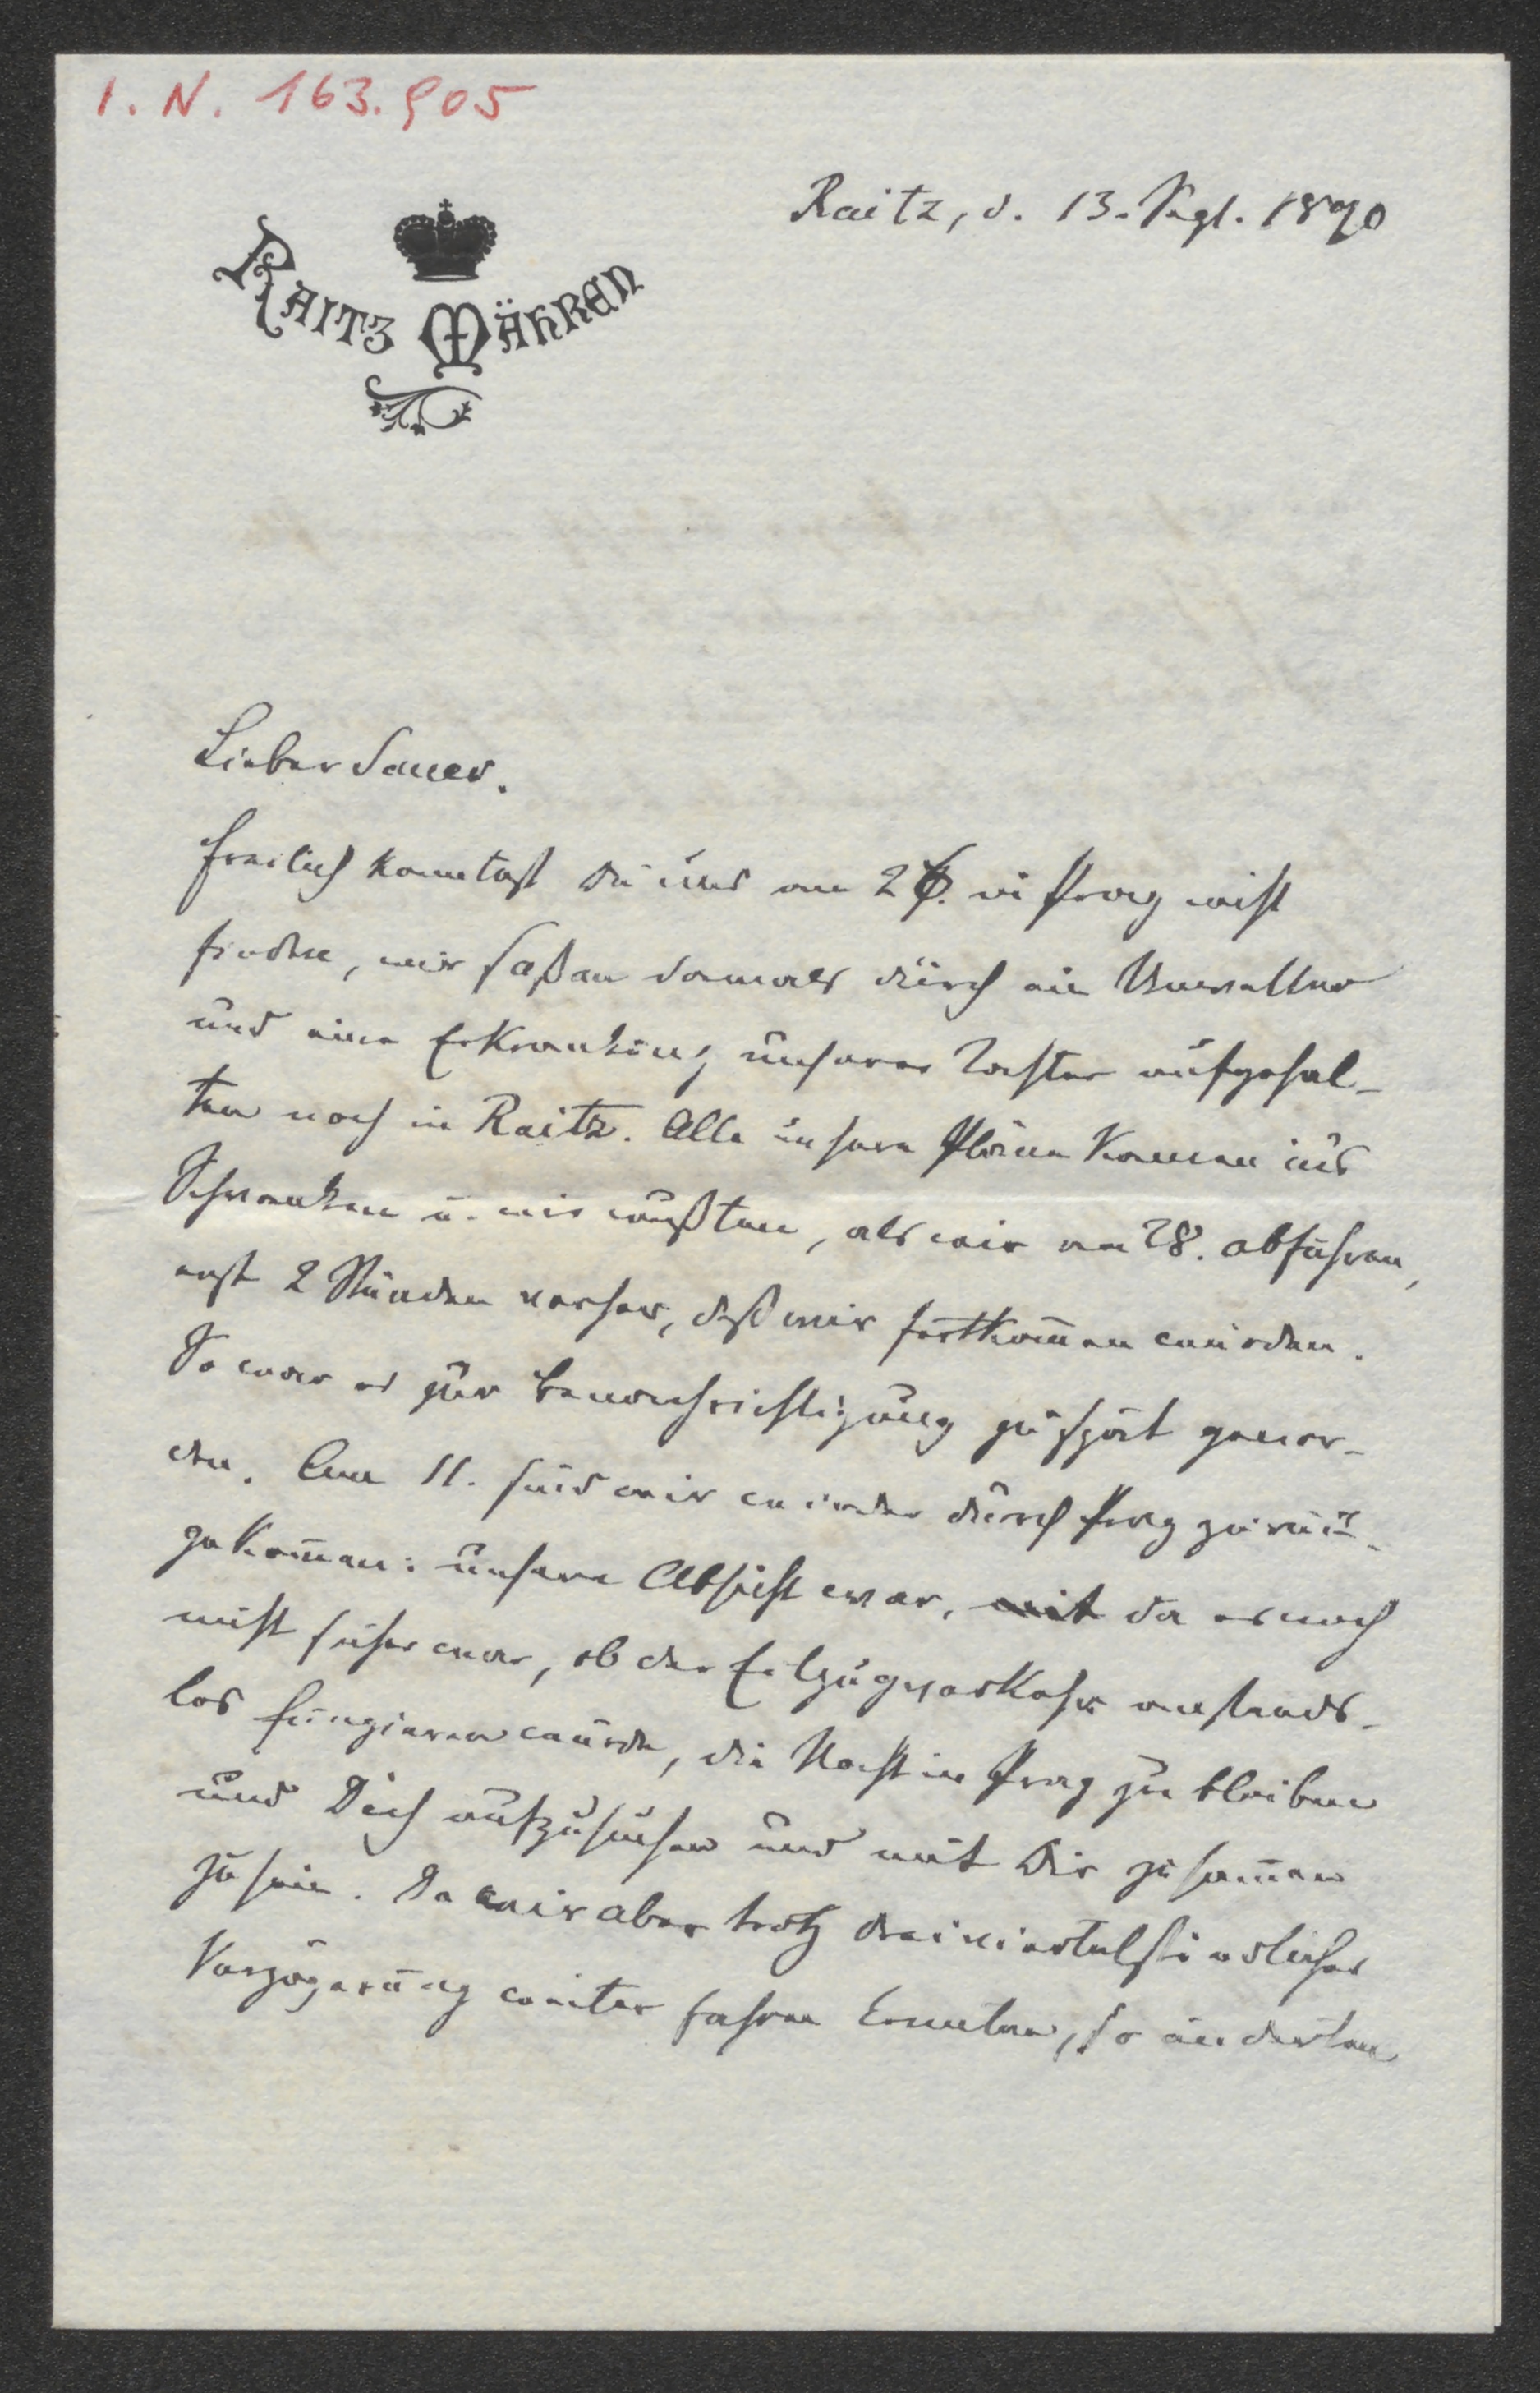 I. N. 163.905
Raitz, d. 13. Sept. 1890
RAITZ MÄHREN
Lieber Sauer.
Freilich konntest Du uns am 26. in Prag nicht
finden, wir saßen damals durch ein Unwetter
und eine Erkrankung unserer Tochter aufgehal-
ten noch in Raitz. Alle unsere Pläne kamen ins
Schwanken u. wir wußten, als wir am 28. abfuhren,
erst 2 Stunden vorher, daß wir fortkom̄en würden.
So war es zur Benachrichtigung zu spät gewor-
den. Am 11. sind wir wieder durch Prag zurück-
gekom̄en: unsere Absicht war, mit da es noch
nicht sicher war, ob der Eilzugverkehr anstands-
los fungieren würde, die Nacht in Prag zu bleiben
und Dich aufzusuchen und mit Dir zusam̄en
zu sein. Da wir aber trotz dreiviertelstündlicher
Verzögerung weiter fahren konnten, so änderten